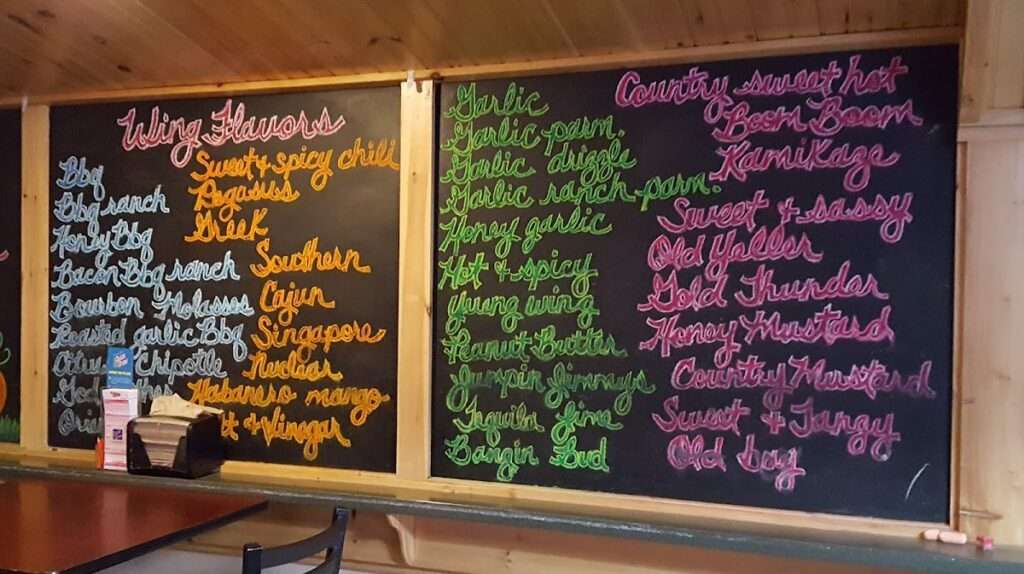 Wing Flavors
Bbq
Bbq ranch
Honey Bbq
Bacon Bbq ranch
Bourbon Molasses
Roasted garlic Bbq
Chipotle
Sweet & spicy chili
Pegasiss
Greek
Southern
Cajun
Singapore
Nuclear
Habanero mango
& Vinegar
Garlic
Garlic parm.
Garlic drizzle
Garlic ranch parm.
Honey garlic
Hot & spicy
yuung wing
Peanut Butter
Jumpin Jimmys
Tequila Jime
Bangin Bud
Country sweet hot
Boom Boom
Kamikaze
Sweet & sassy
Old Yaller
Gold Thunder
Honey Mustard
Country Mustard
Sweet & Tangy
Old bay